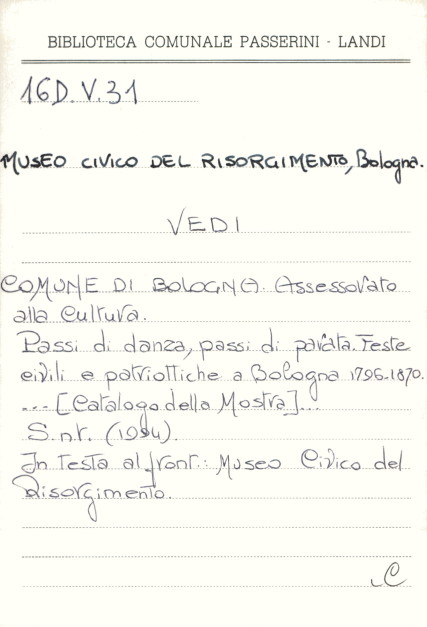 BIBLIOTECA COMUNALE PASSERINI - LANDI
16D.V.31
MUSEO CIVICO DEL RISORGIMENTO, Bologna.
VEDI
COMUNE DI BOLOGNA. Assessorato
alla Cultura.
Passi di danza, passi di parata. Feste
civili e patriottiche a Bologna 1796-1870.
... [Catalogo della Mostra]...
S.n.t. (1984).
In testa al front.: Museo Civico del
Risorgimento.
C